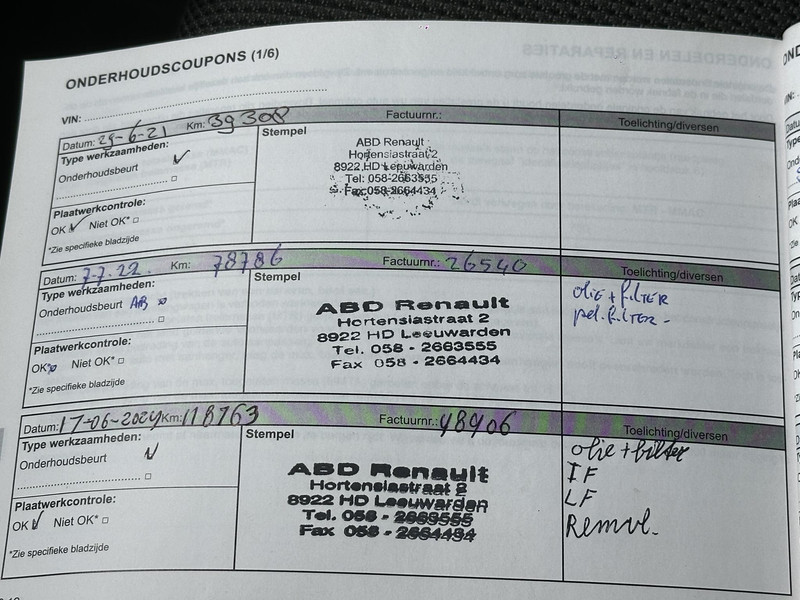 ONDERHOUDSCOUPONS (1/6)
VIN:
Datum: 29-6-21 Km: 39308 Factuurnr.: Toelichting/diversen
Type werkzaamheden:
Onderhoudsbeurt
Plaatwerkcontrole:
OK Niet OK*
*Zie specifieke bladzijde
Stempel
ABD Renault
Hortensiastraat 2
8922 HD Leeuwarden
Tel: 058-2663555
Fax: 058-2664434
Datum: 7-7-22. Km: 78786 Factuurnr.: 26540 Toelichting/diversen
Type werkzaamheden:
Onderhoudsbeurt AB
Plaatwerkcontrole:
OK* Niet OK*
*Zie specifieke bladzijde
Stempel
ABD Renault
Hortensiastraat 2
8922 HD Leeuwarden
Tel. 058 - 2663555
Fax 058 - 2664434
olie + filter
pol. filter -
Datum: 17-06-2024 Km: 118763 Factuurnr.: 48906 Toelichting/diversen
Type werkzaamheden:
Onderhoudsbeurt
Plaatwerkcontrole:
OK Niet OK*
*Zie specifieke bladzijde
Stempel
ABD Renault
Hortensiastraat 2
8922 HD Leeuwarden
Tel. 058 - 2663555
Fax 058 - 2664434
olie + filter
IF
LF
Remvl.